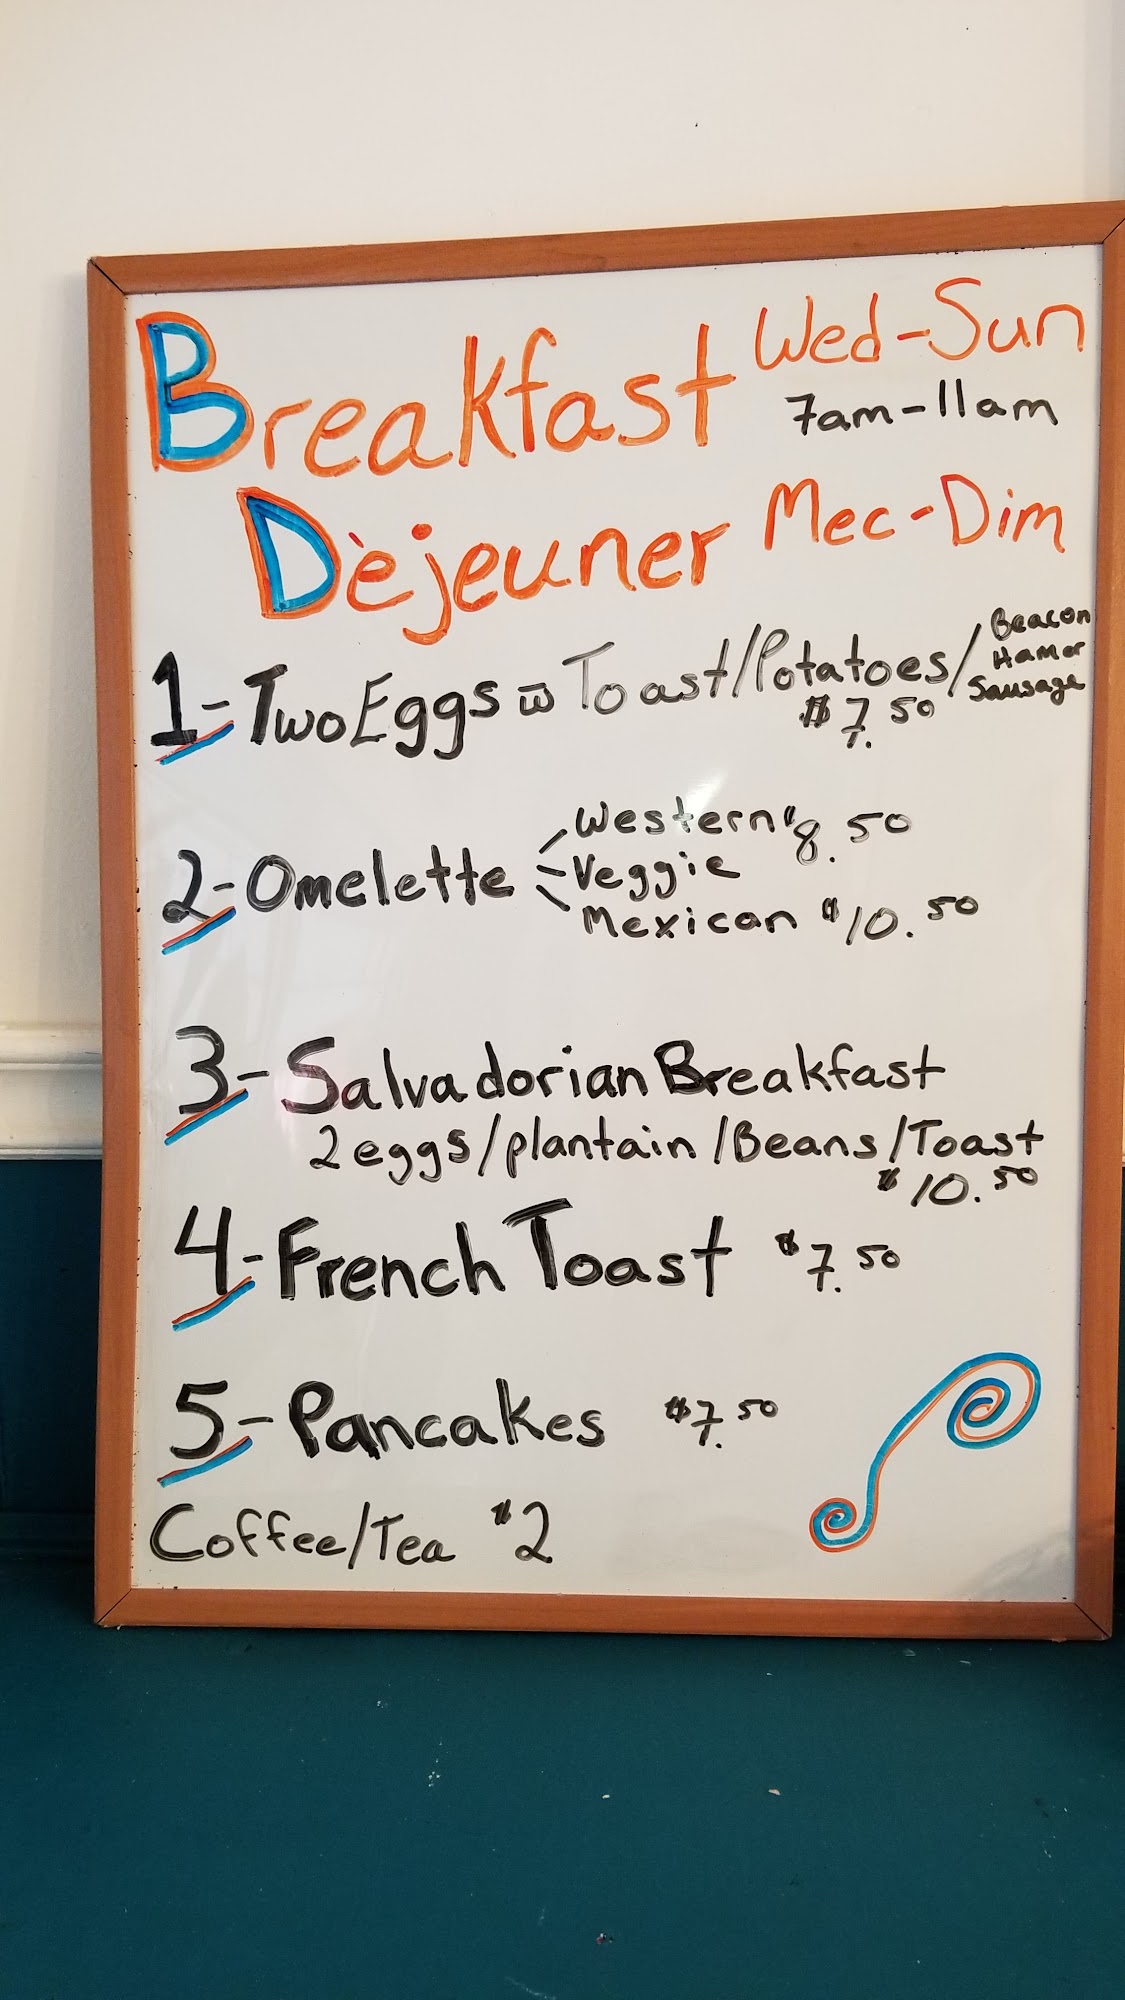 Breakfast Wed-Sun
7am-11am
Dèjeuner Mec-Dim
1- Two Eggs w Toast/Potatoes/Beacon
Ham or
Sausage
$7.50
2- Omelette Western $8.50
Veggie
Mexican $10.50
3- Salvadorian Breakfast
2 eggs/plantain/Beans/Toast
$10.50
4- French Toast $7.50
5- Pancakes $7.50
Coffee/Tea $2